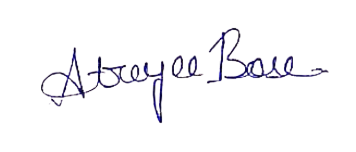 Atreyee Bose